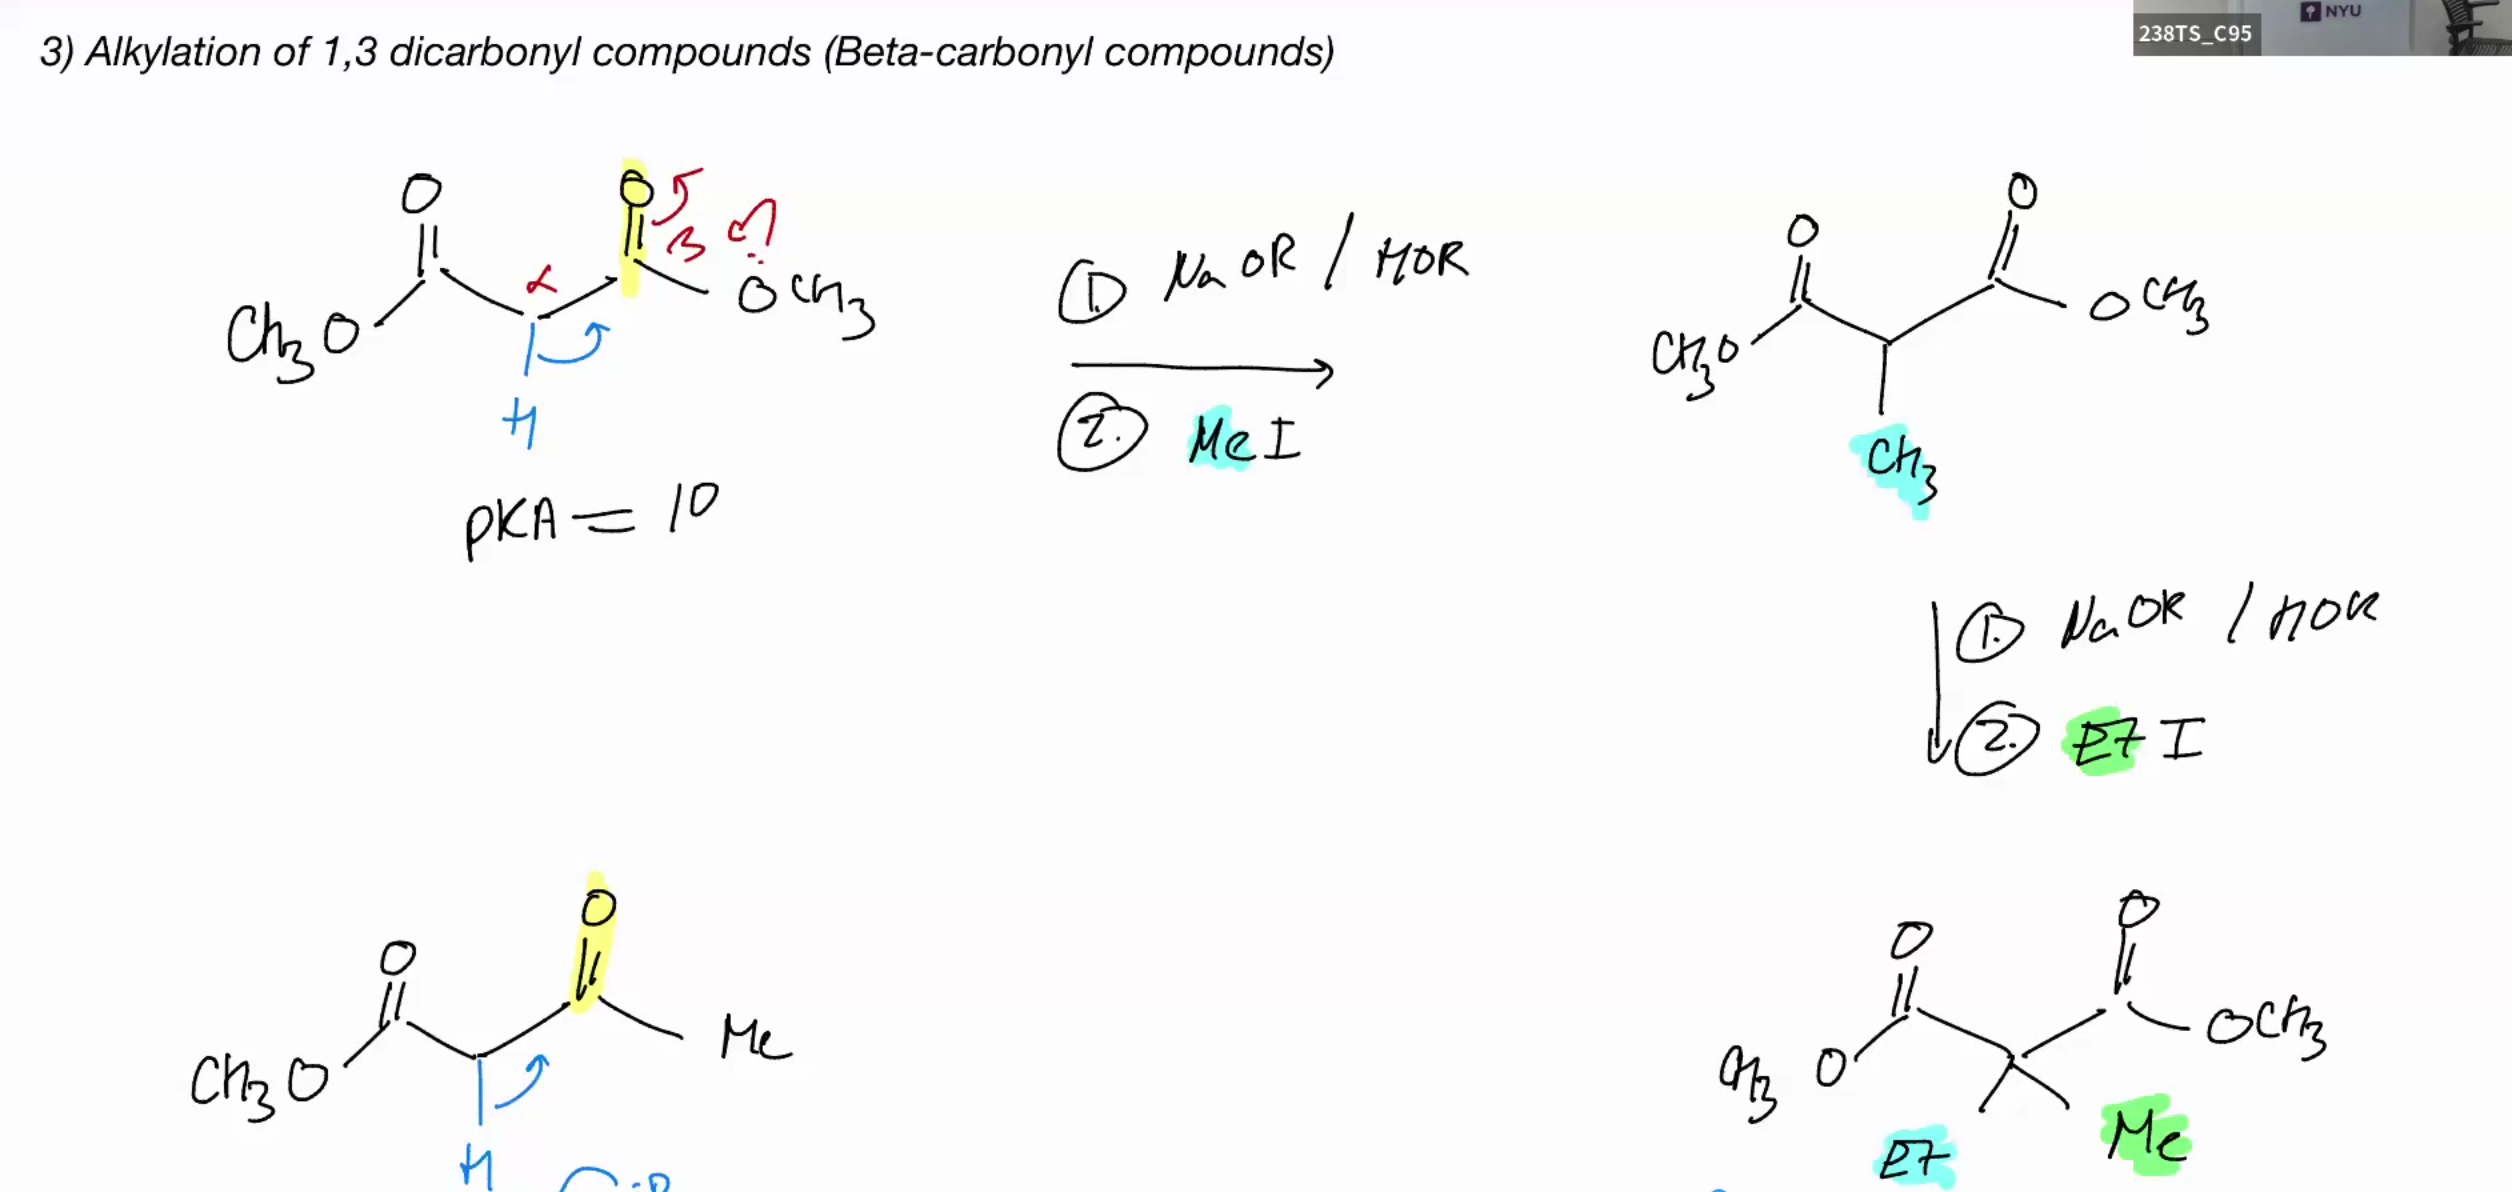 3) Alkylation of 1,3 dicarbonyl compounds (Beta-carbonyl compounds)
238TS_C95
NYU
O
O
α
β
CH3O
OCH3
H
pKA = 10
1. NaOR / HOR
2. MeI
O
O
CH3O
OCH3
CH3
1. NaOR / HOR
2. EtI
O
O
CH3O
Me
H
O
O
CH3 O
OCH3
Et
Me